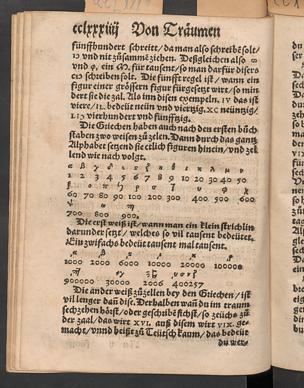 cclxxxiiij Von Träumen
fünffhundert schreitt / da man also schreibē solt /
vnd nit zůsammē ziehen. Deßgleichen also
vnd φ, ein M. für tausent / so man darfür disers
cIɔ schreiben solt. Die fünfft regel ist / wann ein
figur einer grössern figur fürgesetzt wirt / so min
dert sie die zal. Als inn disen exempeln. IV das ist
viere / IL bedeüt neün vnd viertzig. XC neüntzig /
LIɔ vierhundert vnd fünfftzig.
Die Griechen haben auch nach den ersten bůch
staben zwo weisen zů zelen. Dann durch das gantz
Alphabet setzend sie etlich figuren hinein / vnd ze
lend wie nach volgt.
1 2 3 4 5 6 7 8 9 10 20 30 40 50
60 70 80 90 100 200 300 400 500 600
700 800 900.
Die erst weiß ist / wann man ein klein strichlin
darunder setzt / welches so vil tausent bedeütet.
Ein zwifachs bedeüt tausent mal tausent.
1000 2000 10000 20000 100000
900000 30000 2006 400257
Die ander weiß zů zellen bey den Griechen / ist
vil lenger dañ dise. Derhalben wañ du im traum
sechzehen hörst / oder geschribē sichst / so zeüch zů
der zaal / das wirt XVI. auß disem wirt VIX. ge-
macht / vnnd heißt zů Teütsch kaum / das bedeüt
du wer-